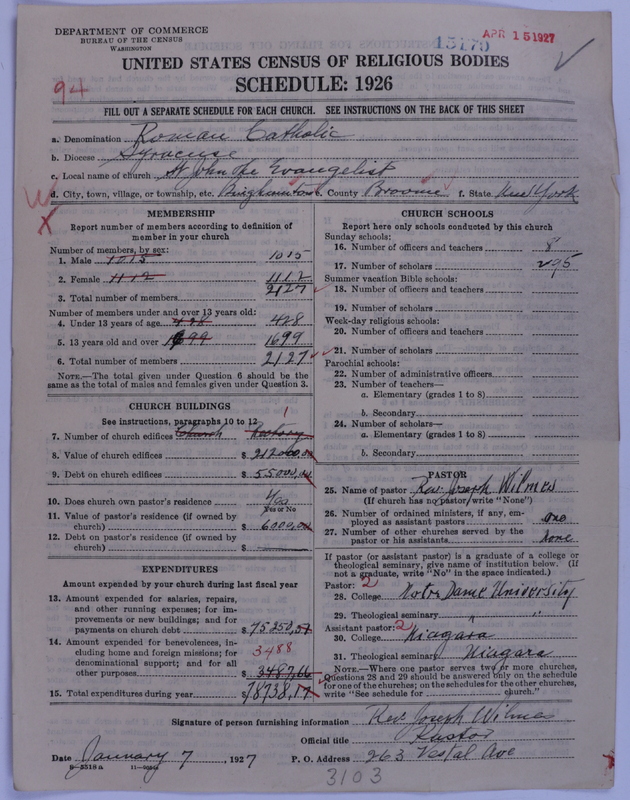 DEPARTMENT OF COMMERCE
BUREAU OF THE CENSUS
WASHINGTON
15179
APR 15 1927
UNITED STATES CENSUS OF RELIGIOUS BODIES
SCHEDULE: 1926
94
FILL OUT A SEPARATE SCHEDULE FOR EACH CHURCH. SEE INSTRUCTIONS ON THE BACK OF THIS SHEET
a. Denomination Roman Catholic
b. Diocese Syracuse
c. Local name of church St John the Evangelist
d. City, town, village, or township, etc. Binghamton e. County Broome f. State New York
MEMBERSHIP
Report number of members according to definition of member in your church
Number of members, by sex:
1. Male 1015 1015
2. Female 1112 1112
3. Total number of members 2127
Number of members under and over 13 years old:
4. Under 13 years of age 428 428
5. 13 years old and over 1699 1699
6. Total number of members 2127
NOTE.—The total given under Question 6 should be the same as the total of males and females given under Question 3.
CHURCH BUILDINGS
See instructions, paragraphs 10 to 12
1
7. Number of church edifices Church Rectory
8. Value of church edifices $ 212000,00
9. Debt on church edifices $ 55000,00
10. Does church own pastor's residence Yes
Yes or No
11. Value of pastor's residence (if owned by church) $ 6000,00
12. Debt on pastor's residence (if owned by church) $
EXPENDITURES
Amount expended by your church during last fiscal year
13. Amount expended for salaries, repairs, and other running expenses; for improvements or new buildings; and for payments on church debt $ 75250,51
14. Amount expended for benevolences, including home and foreign missions; for denominational support; and for all other purposes 3488 $ 3487,66
15. Total expenditures during year $ 78738,17
CHURCH SCHOOLS
Report here only schools conducted by this church
Sunday schools:
16. Number of officers and teachers 8
17. Number of scholars 295
Summer vacation Bible schools:
18. Number of officers and teachers
19. Number of scholars
Week-day religious schools:
20. Number of officers and teachers
21. Number of scholars
Parochial schools:
22. Number of administrative officers
23. Number of teachers—
a. Elementary (grades 1 to 8)
b. Secondary
24. Number of scholars—
a. Elementary (grades 1 to 8)
b. Secondary
PASTOR
25. Name of pastor Rev. Joseph Wilmes
(If church has no pastor, write "None")
26. Number of ordained ministers, if any, employed as assistant pastors one
27. Number of other churches served by the pastor or his assistants none
If pastor (or assistant pastor) is a graduate of a college or theological seminary, give name of institution below. (If not a graduate, write "No" in the space indicated.)
Pastor: 2
28. College Notre Dame University
29. Theological seminary " "
Assistant pastor: 2
30. College Niagara
31. Theological seminary Niagara
NOTE.—Where one pastor serves two or more churches, Questions 28 and 29 should be answered only on the schedule for one of the churches; on the schedules for the other churches, write "See schedule for church."
Signature of person furnishing information Rev. Joseph Wilmes
Official title Pastor
Date January 7, 1927 P. O. Address 263 Vestal Ave
8—5518a
3103